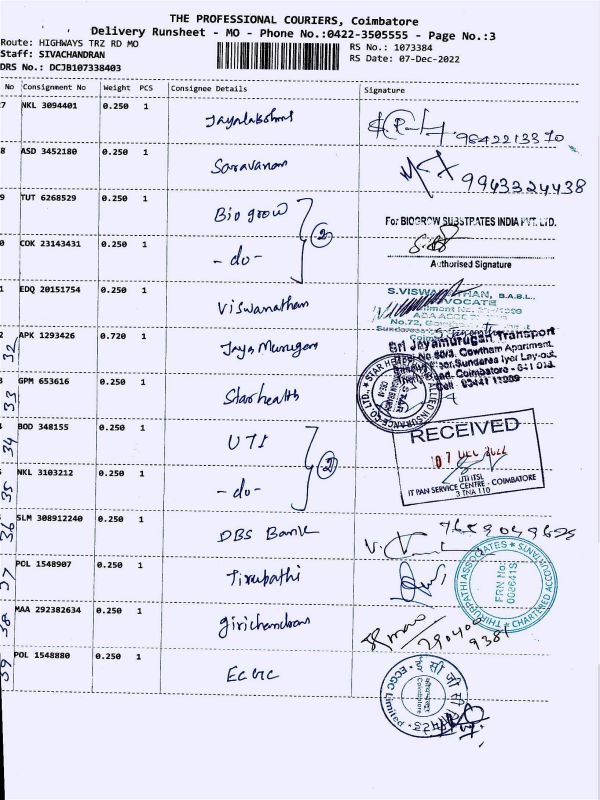 THE PROFESSIONAL COURIERS, Coimbatore
Delivery Runsheet - MO - Phone No.:0422-3505555 - Page No.:3
Route: HIGHWAYS TRZ RD MO
RS No.: 1073384
Staff: SIVACHANDRAN
RS Date: 07-Dec-2022
DRS No.: DCJB107338403
No Consignment No Weight PCS Consignee Details Signature
7 NKL 3094401 0.250 1 Jayalakshmi
9842213370
8 ASD 3452180 0.250 1 Saravanan
9943324438
9 TUT 6268529 0.250 1 Bio grow
For BIOGROW SUBSTRATES INDIA PVT. LTD.
0 COK 23143431 0.250 1 - do - 2
Authorised Signature
1 EDQ 20151754 0.250 1 Viswanathan
S.VISWANATHAN, B.A.B.L.,
ADVOCATE
No.72,
2 APK 1293426 0.720 1 Jaya Murugan
32
Sri Jayamurugan Transport
No 80/3, Gowtham Apartment,
Sundaresa Iyer Lay-out,
Road, Coimbatore - 641 018.
Cell
GPM 653616 0.250 1 Star health
33
BOD 348155 0.250 1 UTI
34
RECEIVED
07 DEC 2022
UTI ITSL
IT PAN SERVICE CENTRE - COIMBATORE
3 TNA 110
NKL 3103212 0.250 1 - do - 2
35
SLM 308912240 0.250 1 DBS Bank
36
7659049625
POL 1548907 0.250 1 Tirupathi
37
THIRUPPATHI ASSOCIATES
CHARTERED ACCOUNTANTS
FRN No:
008641S
MAA 292382634 0.250 1 Girichandran
38
290400
9381
POL 1548880 0.250 1 ECGC
39
ECGC Limited
Coimbatore